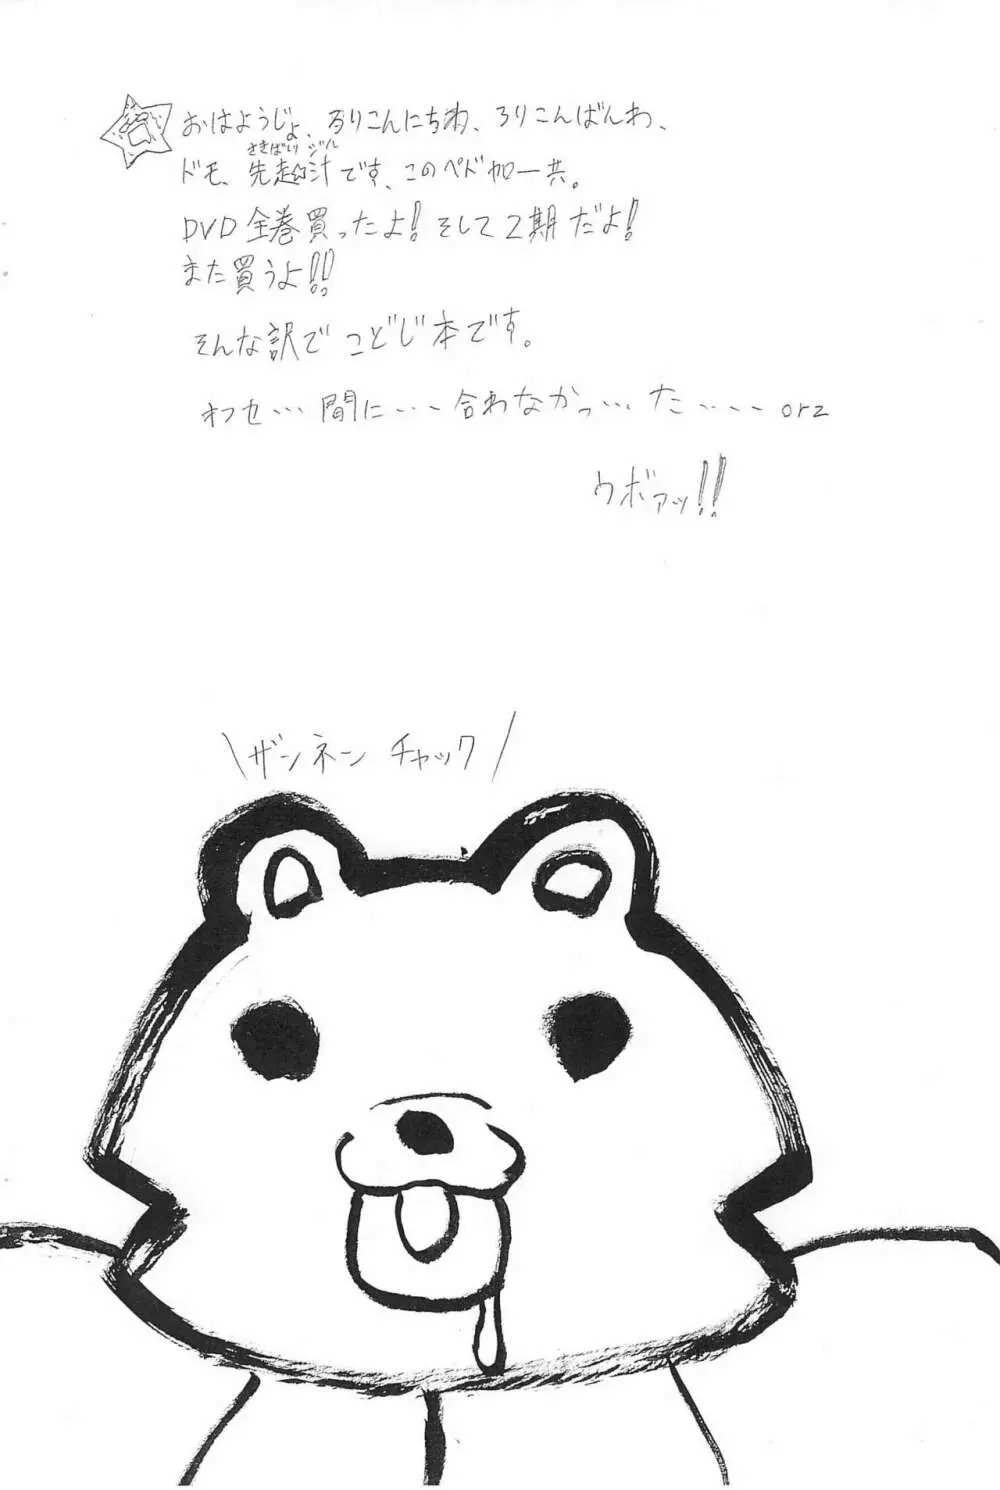 おはようじょ、ろりこんにちわ、ろりこんばんわ、
さきばしり ジル
ドモ、先走☆汁です、このペド加一共。
DVD全巻買ったよ!そして2期だよ!
また買うよ!!
そんな訳でこどじ本です。
オフセ…間に…合わなかっ…た…… orz
ウボァッ!!
\ザンネーン チャック/